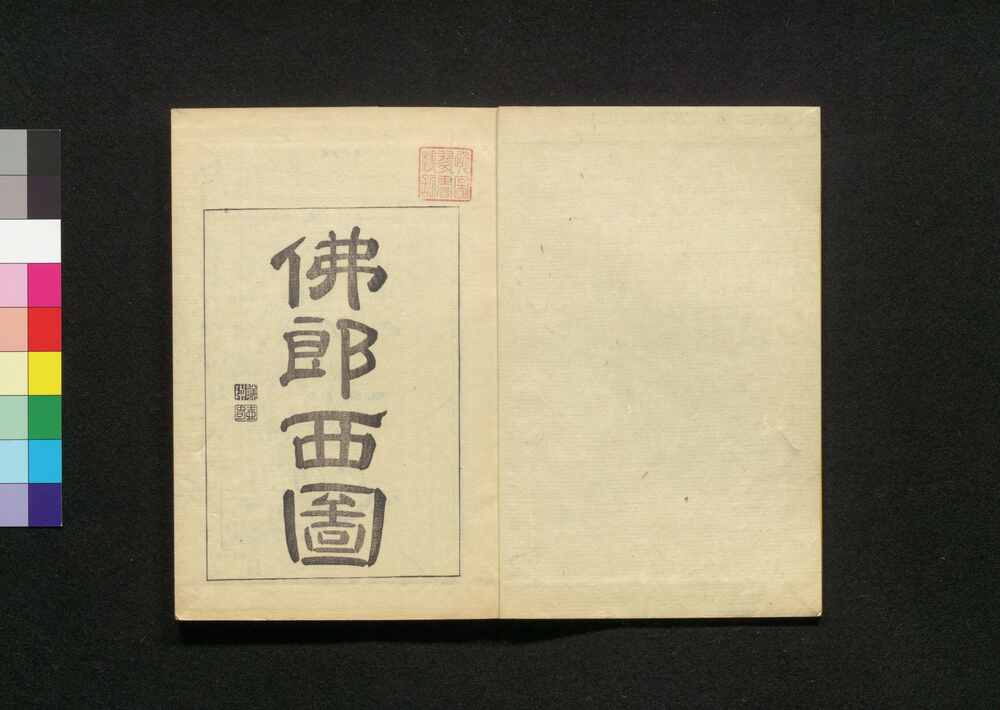 佛郎西圖